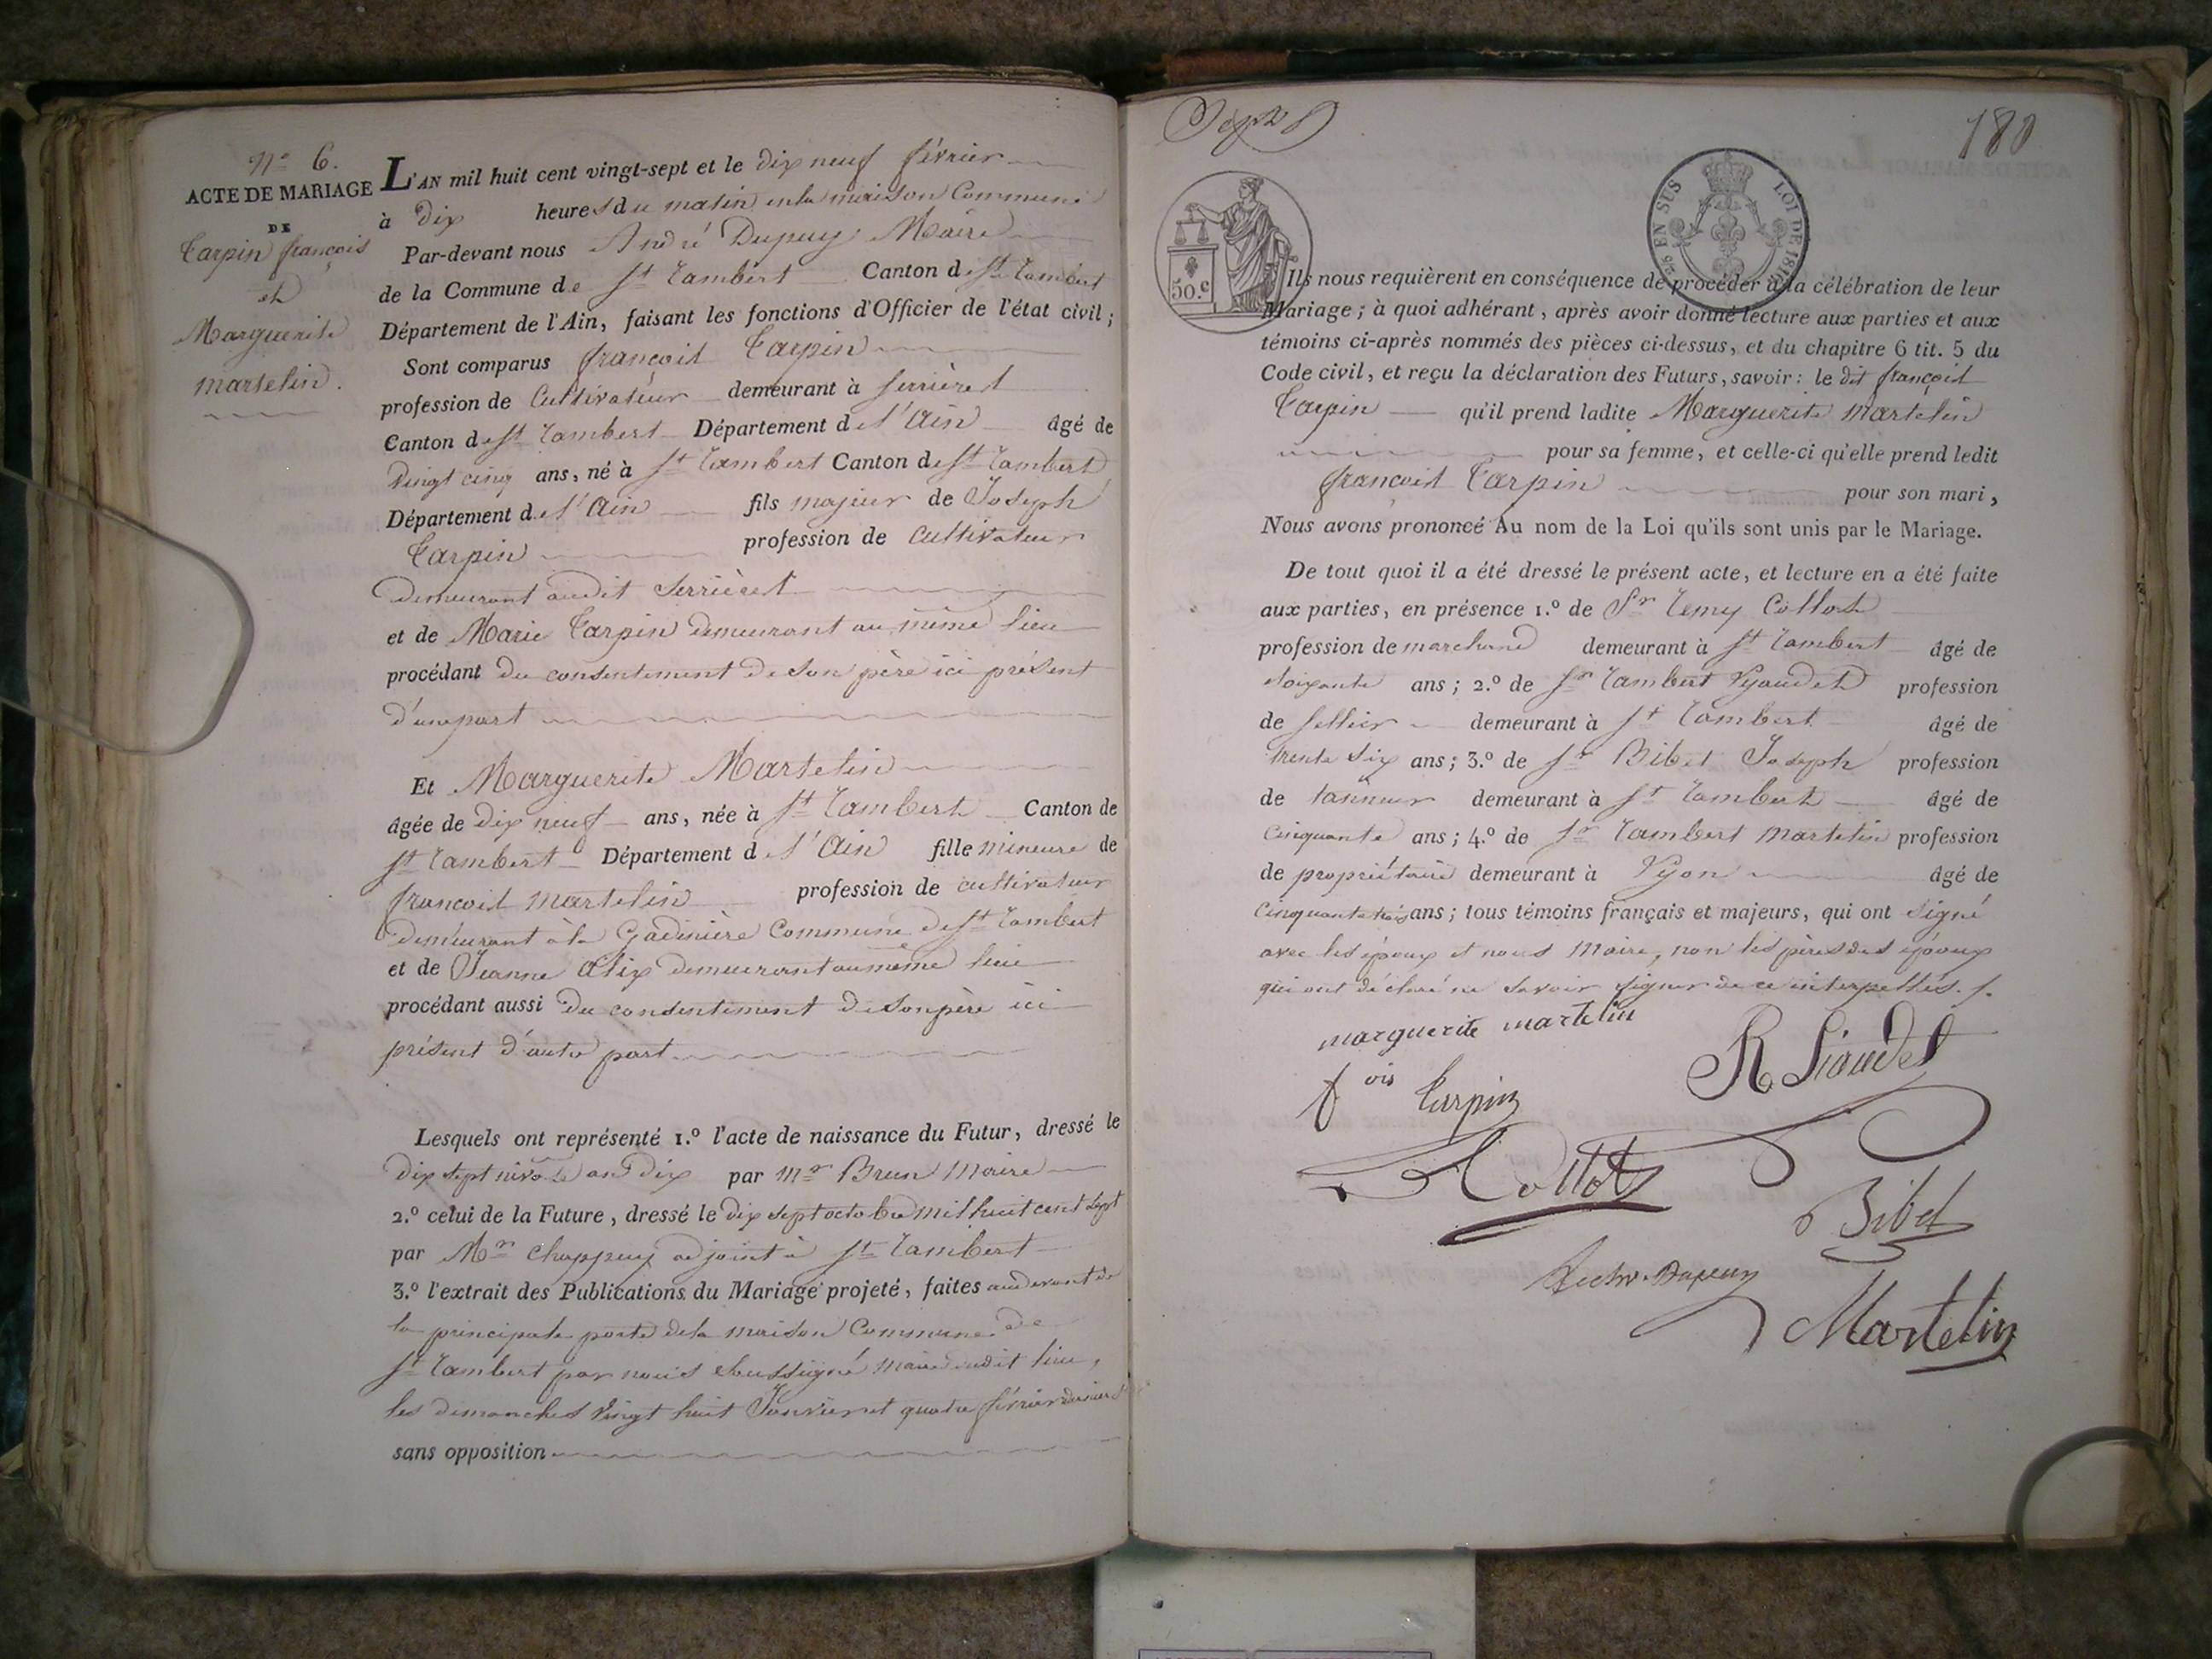 N° 6.
ACTE DE MARIAGE
DE
Tarpin françois
et
Marguerite
martelin.
L'AN mil huit cent vingt-sept et le dix neuf février
à dix heures du matin en la maison Commune
Par-devant nous André Dupuy Maire
de la Commune de St Rambert Canton de St Rambert
Département de l'Ain, faisant les fonctions d'Officier de l'état civil;
Sont comparus françois Tarpin
profession de Cultivateur demeurant à Serrières
Canton de St Rambert Département de l'Ain âgé de
vingt cinq ans, né à St Rambert Canton de St Rambert
Département de l'Ain fils majeur de Joseph
Tarpin profession de cultivateur
demeurant audit Serrières
et de Marie Tarpin demeurant au même lieu
procédant du consentement de son père ici présent
d'une part
Et Marguerite Martelin
âgée de dix neuf ans, née à St Rambert Canton de
St Rambert Département de l'Ain fille mineure de
françois martelin profession de cultivateur
demeurant à la Gadinière Commune de St Rambert
et de Jeanne Alix demeurant au même lieu
procédant aussi du consentement de son père ici
présent d'autre part
Lesquels ont représenté 1.° l'acte de naissance du Futur, dressé le
dix sept nivose an dix par Mr Brun Maire
2.° celui de la Future, dressé le dix sept octobre mil huit cent sept
par Mr Chappuy adjoint à St Rambert
3.° l'extrait des Publications du Mariage projeté, faites au devant de
la principale porte de la maison Commune de
St Rambert par nous soussigné maire dudit lieu,
les dimanches vingt huit Janvier et quatre février derniers
sans opposition
180
50.c
EN SUS
LOI DE 1816
Ils nous requièrent en conséquence de procéder à la célébration de leur
Mariage; à quoi adhérant, après avoir donné lecture aux parties et aux
témoins ci-après nommés des pièces ci-dessus, et du chapitre 6 tit. 5 du
Code civil, et reçu la déclaration des Futurs, savoir: le dit françois
Tarpin qu'il prend ladite Marguerite martelin
pour sa femme, et celle-ci qu'elle prend ledit
françois Tarpin pour son mari,
Nous avons prononcé Au nom de la Loi qu'ils sont unis par le Mariage.
De tout quoi il a été dressé le présent acte, et lecture en a été faite
aux parties, en présence 1.° de Sr Remy Collot
profession de marchand demeurant à St Rambert âgé de
soixante ans; 2.° de Sr Rambert profession
de sellier demeurant à St Rambert âgé de
trente six ans; 3.° de Sr Bibet Joseph profession
de tanneur demeurant à St Rambert âgé de
cinquante ans; 4.° de Sr Rambert martelin profession
de propriétaire demeurant à Lyon âgé de
cinquante trois ans; tous témoins français et majeurs, qui ont signé
avec les époux et nous Maire, non les pères des époux
qui ont déclaré ne savoir signer de ce interpellés.
marguerite martelin
R Lioudet
fois Tarpin
Collot
Bibet
Dupuy
Martelin